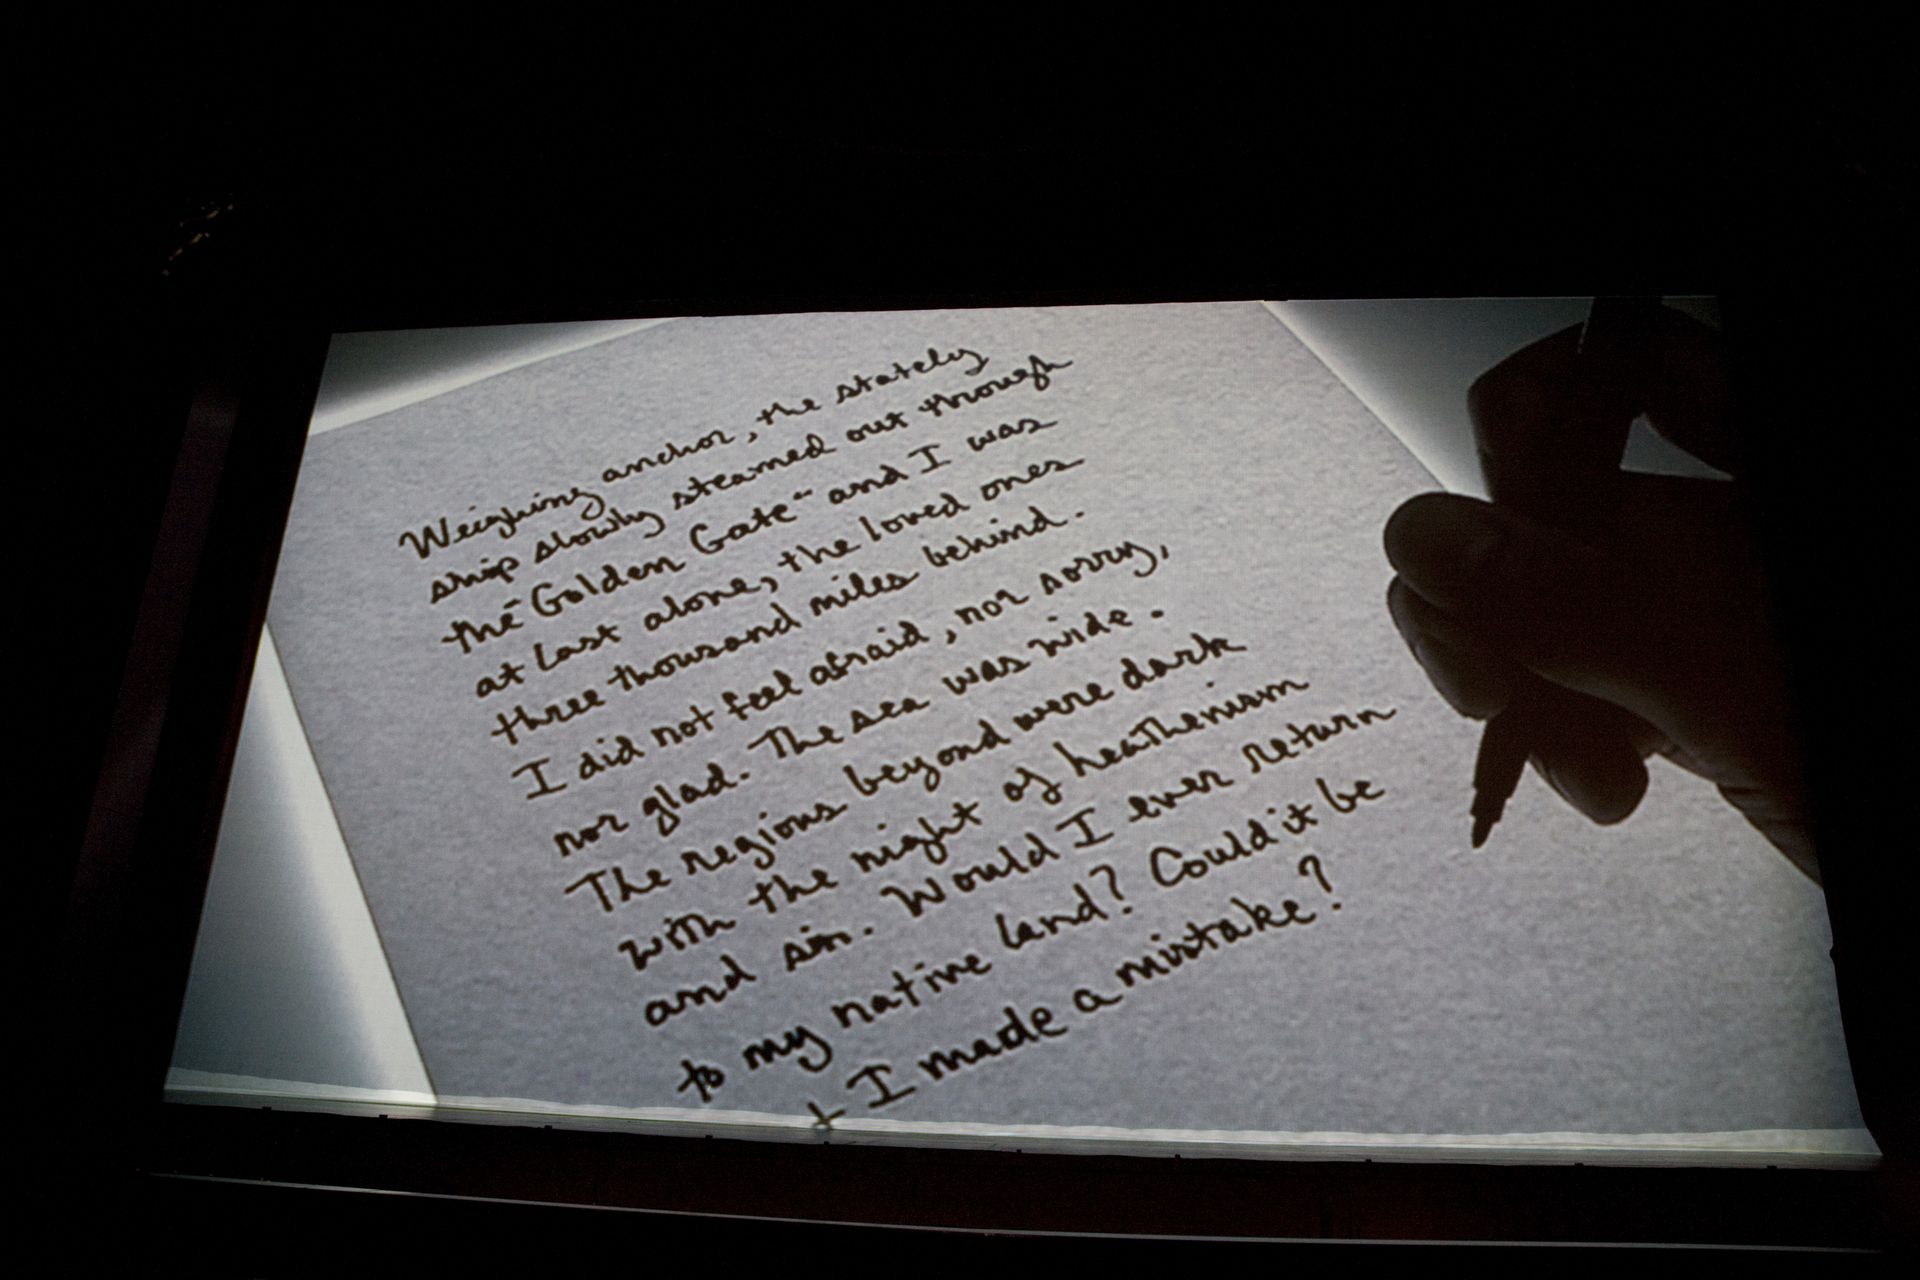 Weighing anchor, the stately
ship slowly steamed out through
the "Golden Gate" and I was
at last alone, the loved ones
three thousand miles behind.
I did not feel afraid, nor sorry,
nor glad. The sea was wide.
The regions beyond were dark
with the night of heathenism
and sin. Would I ever return
to my native land? Could it be
I made a mistake?